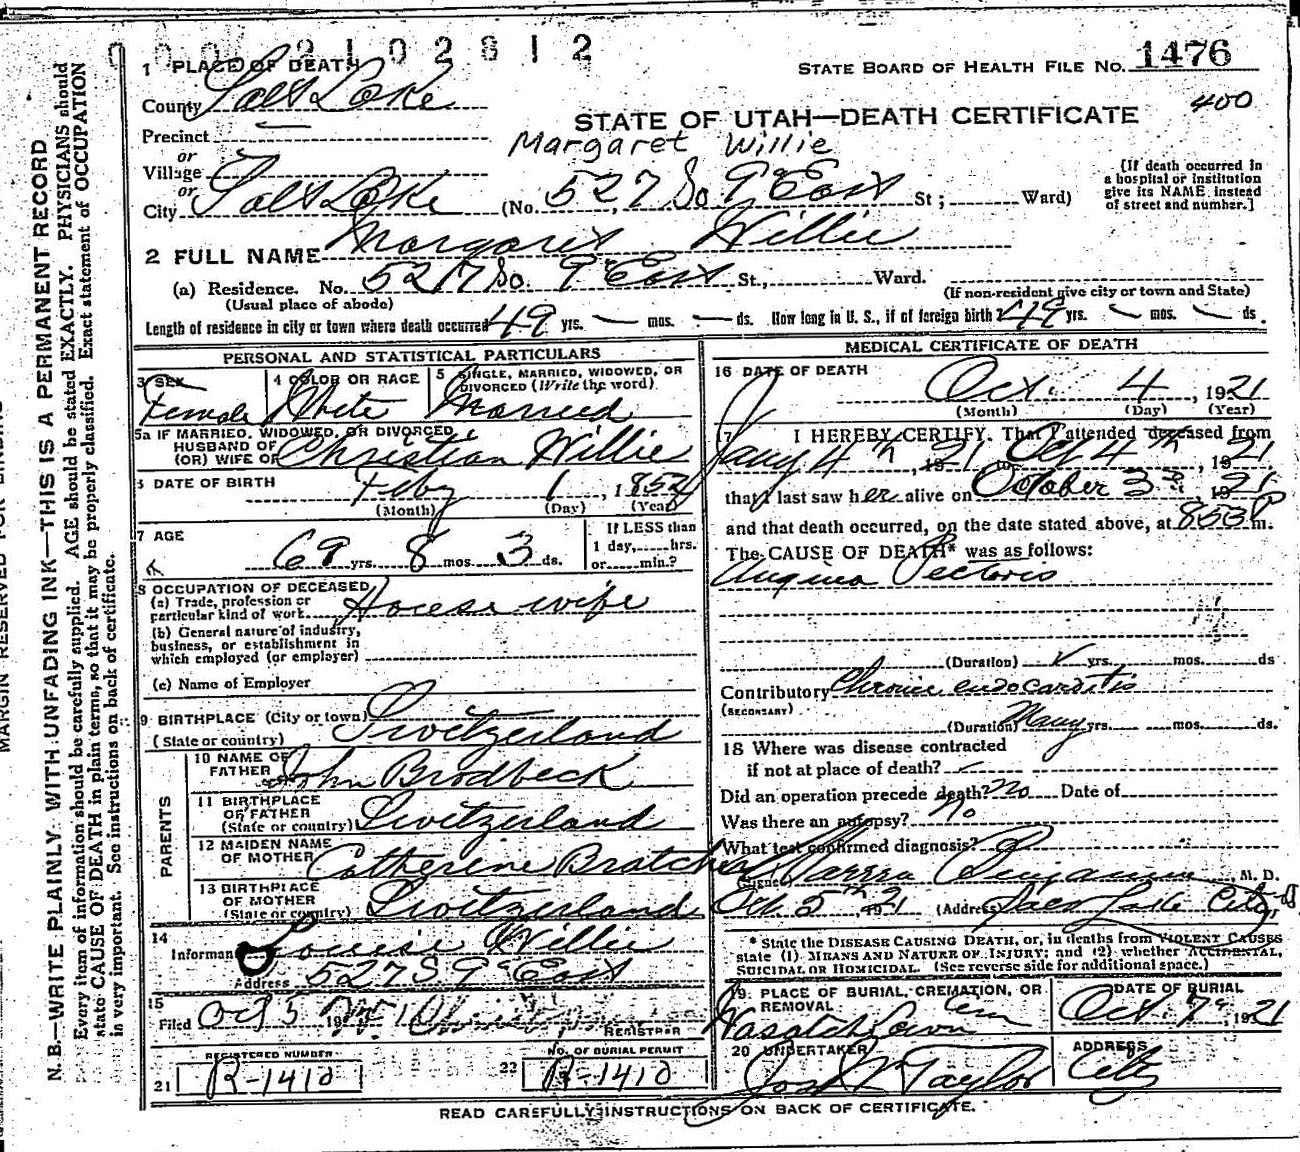 0 0 0 2 1 0 2 8 1 2
1 PLACE OF DEATH
STATE BOARD OF HEALTH FILE NO. 1476
County Salt Lake
400
STATE OF UTAH—DEATH CERTIFICATE
Precinct
Margaret Willie
or
Village
or
City Salt Lake (No. 527 So 9" East St; Ward)
[If death occurred in
a hospital or institution
give its NAME instead
of street and number.]
2 FULL NAME Margaret Willie
(a) Residence. No. 527 So. 9" East St., Ward.
(Usual place of abode) (If non-resident give city or town and State)
Length of residence in city or town where death occurred 49 yrs. — mos. — ds. How long in U. S., if of foreign birth? 49 yrs. — mos. — ds.
PERSONAL AND STATISTICAL PARTICULARS
3 SEX
Female
4 COLOR OR RACE
White
5 SINGLE, MARRIED, WIDOWED, OR
DIVORCED (Write the word)
Married
5a IF MARRIED, WIDOWED, OR DIVORCED,
HUSBAND OF
(OR) WIFE OF Christian Willie
6 DATE OF BIRTH Feby 1, 1852
(Month) (Day) (Year)
7 AGE
69 yrs. 8 mos. 3 ds.
If LESS than
1 day, hrs.
or min.?
8 OCCUPATION OF DECEASED
(a) Trade, profession or
particular kind of work House wife
(b) General nature of industry,
business, or establishment in
which employed (or employer)
(c) Name of Employer
9 BIRTHPLACE (City or town)
(State or country) Switzerland
PARENTS
10 NAME OF
FATHER John Brodbeck
11 BIRTHPLACE
OF FATHER
(State or country) Switzerland
12 MAIDEN NAME
OF MOTHER Catherine Bratcher
13 BIRTHPLACE
OF MOTHER
(State or country) Switzerland
14
Informant Louise Willie
Address 527 S 9" East
15
Filed Oct 5 REGISTRAR
21 REGISTERED NUMBER
R-1410
22 NO. OF BURIAL PERMIT
R-1410
MEDICAL CERTIFICATE OF DEATH
16 DATE OF DEATH
Oct. 4, 1921
(Month) (Day) (Year)
17 I HEREBY CERTIFY, That I attended deceased from
Jany 4th, 1921 to Oct 4th, 1921
that I last saw her alive on October 3rd 1921
and that death occurred, on the date stated above, at 853 P m.
The CAUSE OF DEATH* was as follows:
Angina Pectoris
(Duration) yrs. mos. ds
Contributory Chronic endocarditis
(SECONDARY)
(Duration) Many yrs. mos. ds.
18 Where was disease contracted
if not at place of death?
Did an operation precede death? no Date of
Was there an autopsy? no
What test confirmed diagnosis?
(Signed) Benjamin, M. D.
Oct. 5th 1921 (Address) Salt Lake City
* State the DISEASE CAUSING DEATH, or, in deaths from VIOLENT CAUSES
state (1) MEANS AND NATURE OF INJURY; and (2) whether ACCIDENTAL,
SUICIDAL OR HOMICIDAL. (See reverse side for additional space.)
19 PLACE OF BURIAL, CREMATION, OR
REMOVAL Cem
Wasatch Lawn
DATE OF BURIAL
Oct. 7", 1921
20 UNDERTAKER
Jos Wm Taylor
ADDRESS
City
READ CAREFULLY INSTRUCTIONS ON BACK OF CERTIFICATE.
MARGIN RESERVED FOR BINDING
N. B.—WRITE PLAINLY, WITH UNFADING INK—THIS IS A PERMANENT RECORD
Every item of information should be carefully supplied. AGE should be stated EXACTLY. PHYSICIANS should
state CAUSE OF DEATH in plain terms, so that it may be properly classified. Exact statement of OCCUPATION
is very important. See instructions on back of certificate.